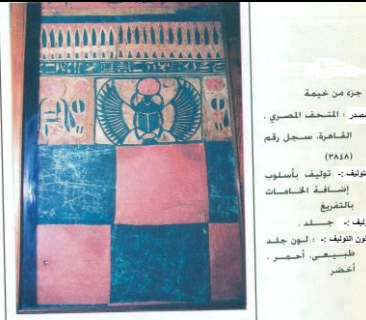 جزء من خيمة
صدر : المتحف المصري .
القاهرة، سجل رقم
(٣٨٤٨)
توليف :- توليف بأسلوب
إضافة الخامات
بالتفريغ
وليف :- جـــلـد .
لون التوليف :- : لـون جلـد
طبـيـعـى، أحمـــر .
أخضر